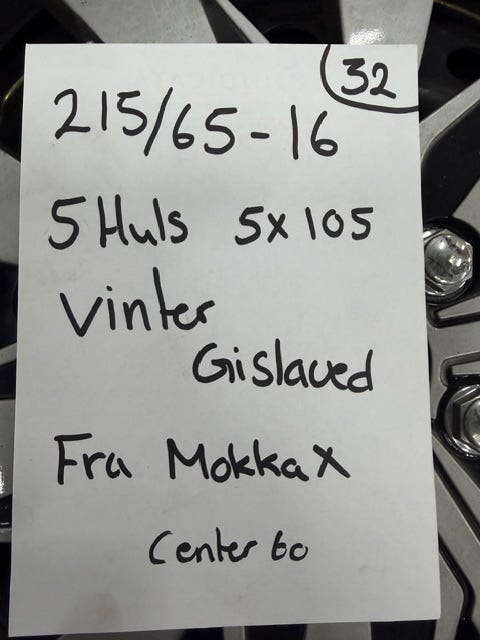 32
215/65-16
5 Huls 5x105
Vinter
Gislaved
Fra Mokka X
Center 60